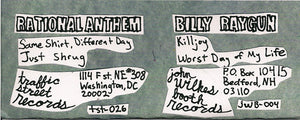 RATIONAL ANTHEM
Same Shirt, Different Day
Just Shrug
traffic
street
records
1114 F st. NE #308
Washington, DC
20002
tst-026
BILLY RAYGUN
Killjoy
Worst Day of My Life
john
wilkes
booth
records
P.O. Box 10415
Bedford, NH
03110
JWB-004